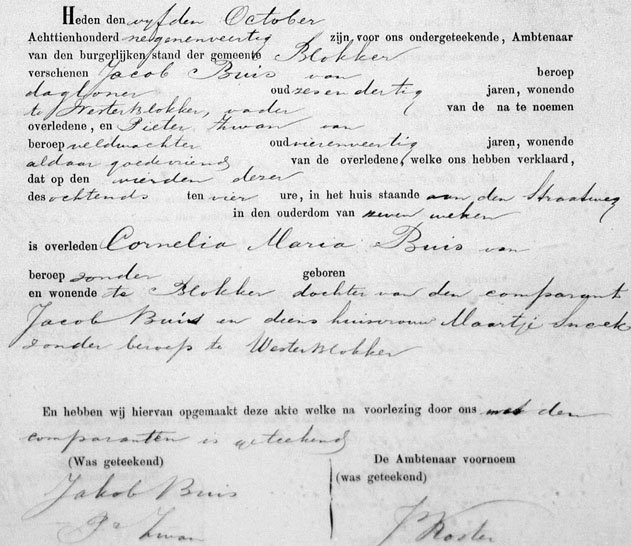 Heden den vyfden October
Achttienhonderd negenenveertig zijn voor ons ondergeteekende, Ambtenaar
van den burgerlijken stand der gemeente Blokker
verschenen Jacob Buis van beroep
daglooner oud zesendertig jaren, wonende
te Westerblokker, vader van de na te noemen
overledene, en Pieter Zwan van
beroep veldwachter oud vierenveertig jaren, wonende
aldaar goedevriend van de overledene, welke ons hebben verklaard,
dat op den vierden dezer
des ochtends ten vier ure, in het huis staande aan den Straatweg
in den ouderdom van zeven weken
is overleden Cornelia Maria Buis van
beroep zonder geboren
en wonende te Blokker dochter van den comparant
Jacob Buis en diens huisvrouw Maartje Snoek
zonder beroep te Westerblokker
En hebben wij hiervan opgemaakt deze akte welke na voorlezing door ons met den
comparanten is geteekend
(Was geteekend) De Ambtenaar voornoem
(was geteekend)
Jakob Buis
Pr Zwan J Koster